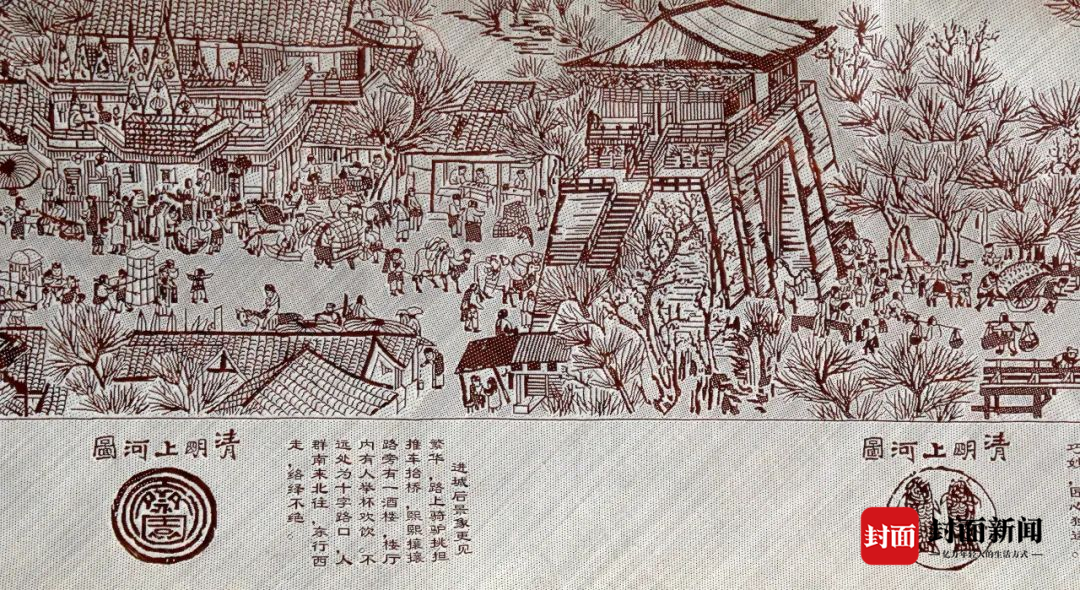 清明上河圖
进诚后景象更见
繁华,路上骑驴挑担
推车抬桥,熙熙攘攘
路旁有一酒楼,楼厅
内有人举杯欢饮。不
远处为十字路口,人
群南来北往,东行西
走,络绎不绝。
清明上河圖
封面
封面新闻
亿万年轻人的生活方式